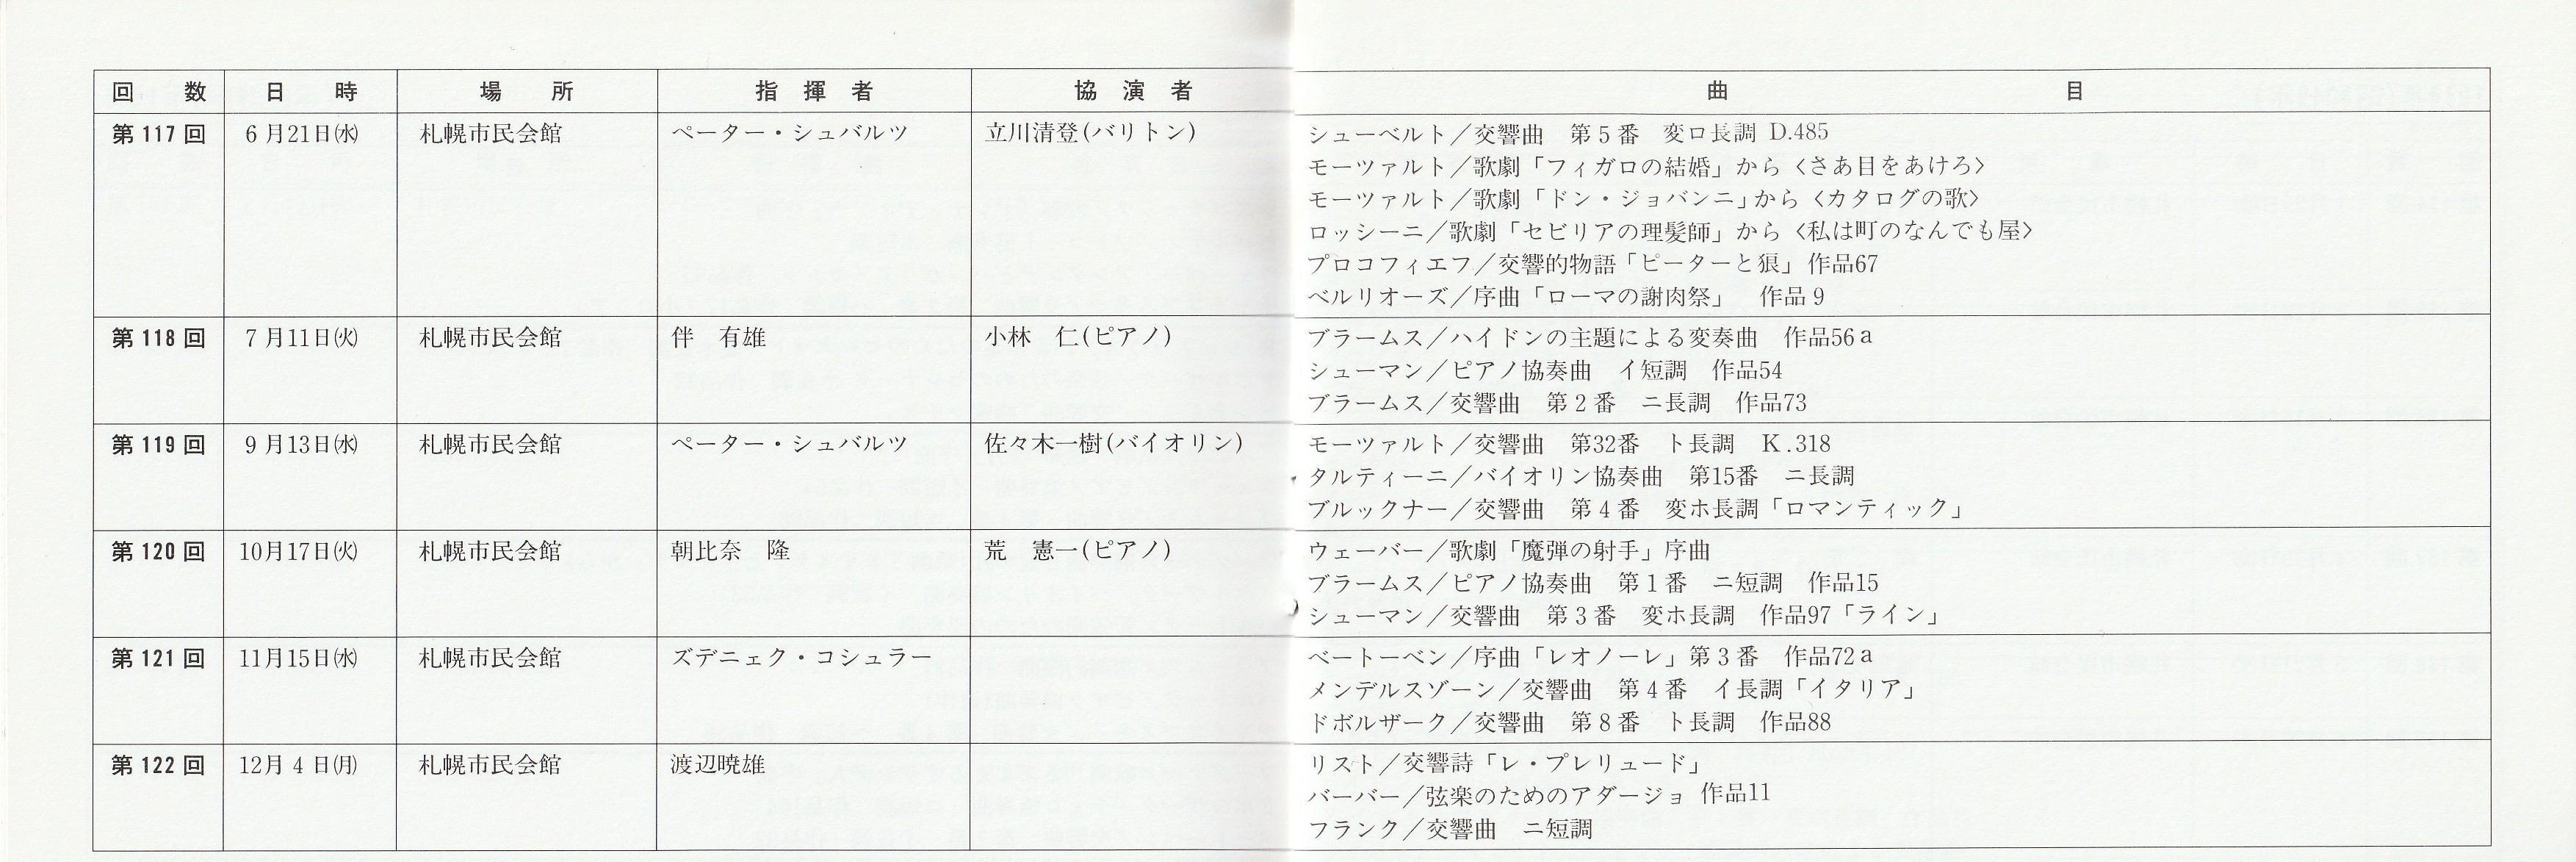 回　数　日　時　場　所　指　揮　者　協　演　者　曲　目
第117回　6月21日㈬　札幌市民会館　ペーター・シュバルツ　立川清登(バリトン)　シューベルト／交響曲　第5番　変ロ長調 D.485
モーツァルト／歌劇「フィガロの結婚」から〈さあ目をあけろ〉
モーツァルト／歌劇「ドン・ジョバンニ」から〈カタログの歌〉
ロッシーニ／歌劇「セビリアの理髪師」から〈私は町のなんでも屋〉
プロコフィエフ／交響的物語「ピーターと狼」作品67
ベルリオーズ／序曲「ローマの謝肉祭」　作品9
第118回　7月11日㈫　札幌市民会館　伴　有雄　小林　仁(ピアノ)　ブラームス／ハイドンの主題による変奏曲　作品56a
シューマン／ピアノ協奏曲　イ短調　作品54
ブラームス／交響曲　第2番　ニ長調　作品73
第119回　9月13日㈬　札幌市民会館　ペーター・シュバルツ　佐々木一樹(バイオリン)　モーツァルト／交響曲　第32番　ト長調　K.318
タルティーニ／バイオリン協奏曲　第15番　ニ長調
ブルックナー／交響曲　第4番　変ホ長調「ロマンティック」
第120回　10月17日㈫　札幌市民会館　朝比奈　隆　荒　憲一(ピアノ)　ウェーバー／歌劇「魔弾の射手」序曲
ブラームス／ピアノ協奏曲　第1番　ニ短調　作品15
シューマン／交響曲　第3番　変ホ長調　作品97「ライン」
第121回　11月15日㈬　札幌市民会館　ズデニェク・コシュラー　ベートーベン／序曲「レオノーレ」第3番　作品72a
メンデルスゾーン／交響曲　第4番　イ長調「イタリア」
ドボルザーク／交響曲　第8番　ト長調　作品88
第122回　12月4日㈪　札幌市民会館　渡辺暁雄　リスト／交響詩「レ・プレリュード」
バーバー／弦楽のためのアダージョ 作品11
フランク／交響曲　ニ短調